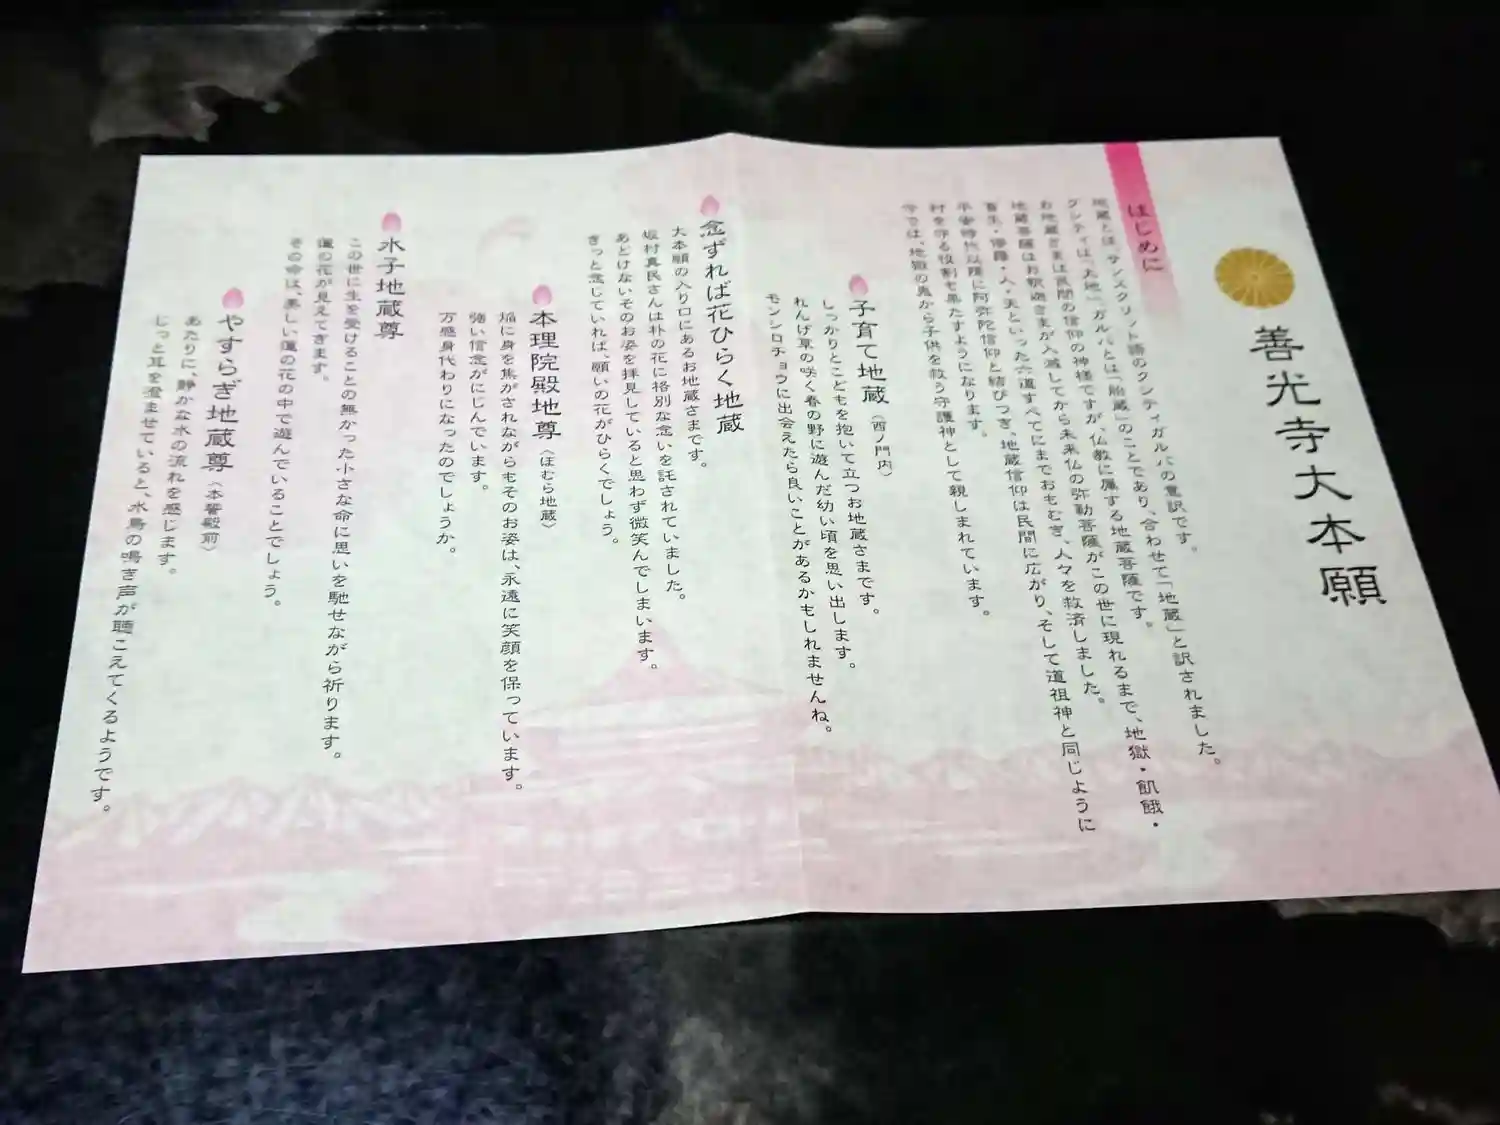 善光寺大本願
はじめに
地蔵とは、サンスクリット語のクシティガルバの意訳です。
クシティは、「大地」、ガルバとは「胎蔵」のことであり、合わせて「地蔵」と訳されました。
お地蔵さまは民間の信仰の神様ですが、仏教に属する地蔵菩薩です。
地蔵菩薩はお釈迦さまが入滅してから未来仏の弥勒菩薩がこの世に現れるまで、地獄・飢餓・
畜生・修羅・人・天といった六道すべてにまでおもむき、人々を救済しました。
平安時代以降に阿弥陀信仰と結びつき、地蔵信仰は民間に広がり、そして道祖神と同じように
村を守る役割も果たすようになります。
今では、地獄の鬼から子供を救う守護神として親しまれています。
子育て地蔵（西ノ門内）
しっかりとこどもを抱いて立つお地蔵さまです。
れんげ草の咲く春の野に遊んだ幼い頃を思い出します。
モンシロチョウに出会えたら良いことがあるかもしれませんね。
念ずれば花ひらく地蔵
大本願の入り口にあるお地蔵さまです。
坂村真民さんは朴の花に格別な念いを託されていました。
あどけないそのお姿を拝見していると思わず微笑んでしまいます。
きっと念じていれば、願いの花がひらくでしょう。
本理院殿地尊（ほむら地蔵）
焔に身を焦がされながらもそのお姿は、永遠に笑顔を保っています。
強い信念がにじんでいます。
万感身代わりになったのでしょうか。
水子地蔵尊
この世に生を受けることの無かった小さな命に思いを馳せながら祈ります。
蓮の花が見えてきます。
その命は、美しい蓮の花の中で遊んでいることでしょう。
やすらぎ地蔵尊（本誓殿前）
あたりに、静かな水の流れを感じます。
じっと耳を澄ませていると、水鳥の鳴き声が聴こえてくるようです。